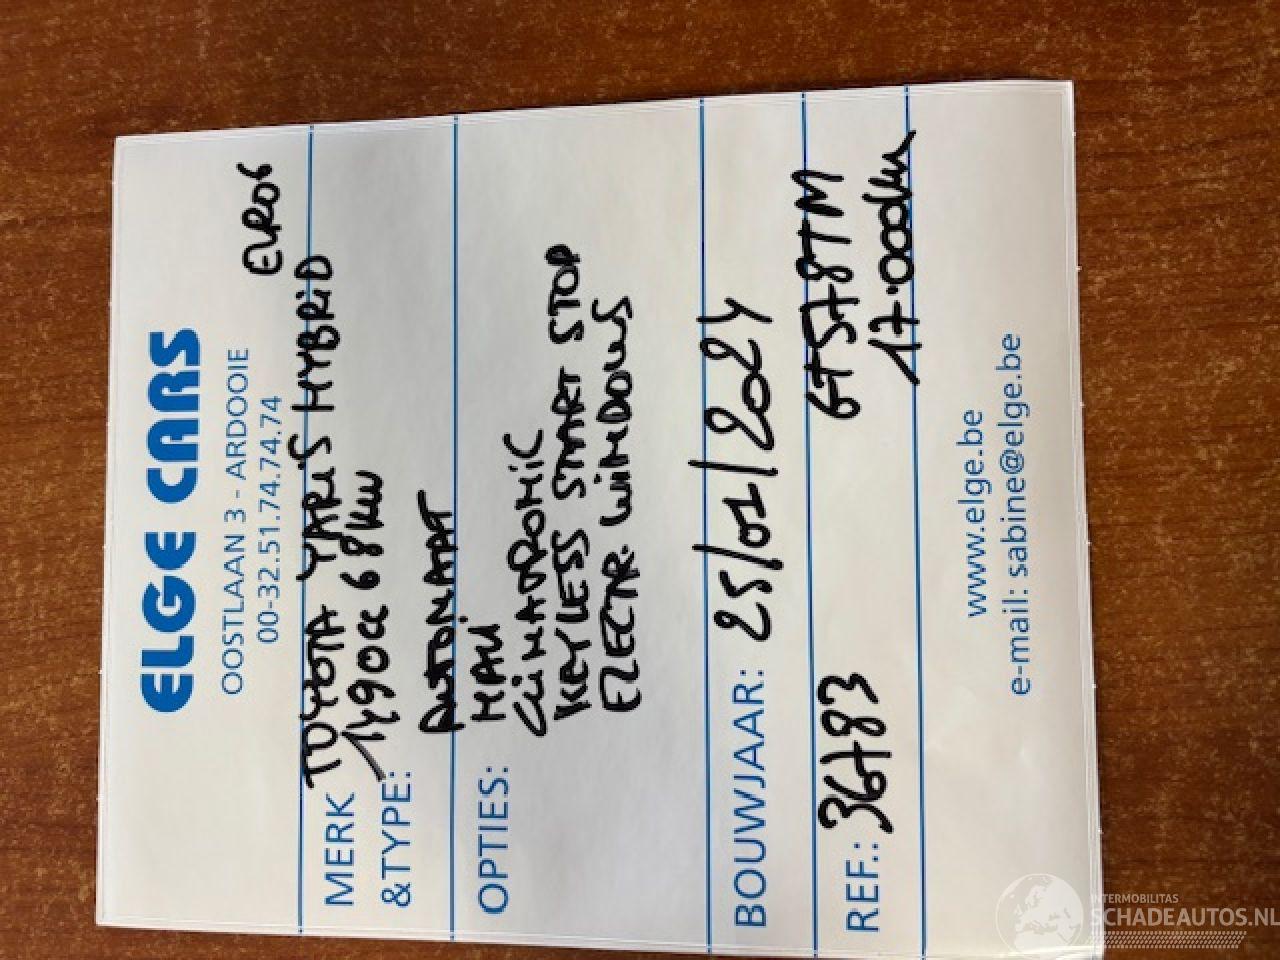 ELGE CARS
OOSTLAAN 3 - ARDOOIE
00-32.51.74.74.74
EURO6
MERK TOYOTA YARIS HYBRID
1490cc 68kw
&TYPE:
AUTOMAAT
OPTIES: NAVI
CLIMATRONIC
KEYLESS START STOP
ELECTR. WINDOWS
BOUWJAAR: 25/01/2024
REF.: 36783
17.000km
www.elge.be
e-mail: sabine@elge.be
INTERMOBILITAS
SCHADEAUTOS.NL